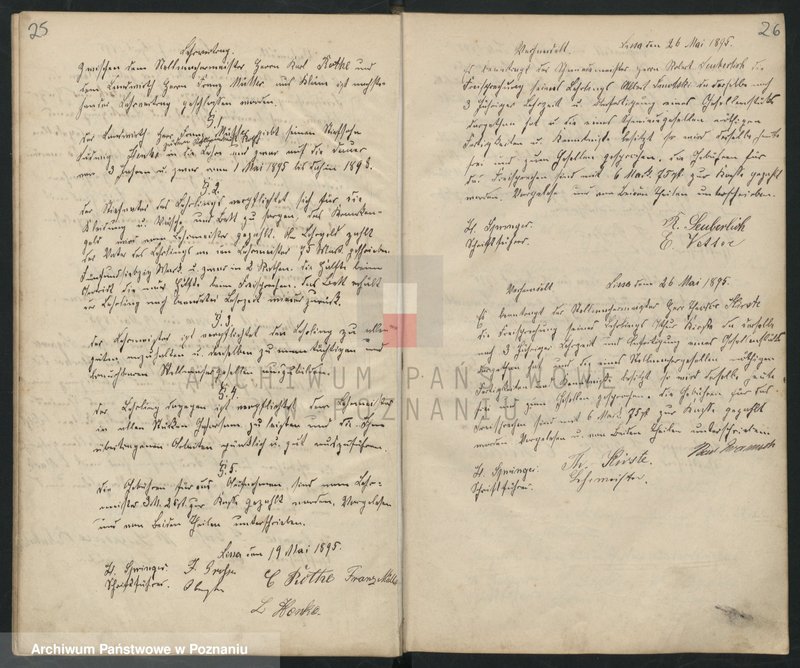 25
Lehrvertrag.
Zwischen dem Stellmachermeister Herrn Karl Rothe und
dem Landwirth Herrn Franz Müller aus Kläne ist nachste-
hender Lehrvertrag geschlossen worden.
Der Landwirth Herr Franz Müller giebt seinen Stiefsohn
in die Lehre und zwar auf die Dauer
von 3 Jahren u. zwar vom 1 Mai 1895 bis dahin 1898.
§ 2.
Der Stiefvater des Lehrlings verpflichtet sich für die
Kleidung u. Wäsche und Bett zu sorgen, das Kranken-
geld wird vom Lehrmeister gezahlt. An Lehrgeld zahlt
der Vater des Lehrlings an den Lehrmeister 75 Mark geschrieben
Fünfundsiebzig Mark u. zwar in 2 Rathen. die Hälfte beim
die andere Hälfte beim Freisprechen. Das Bett erhält
der Lehrling nach beendeter Lehrzeit wieder zurück.
§. 3.
Der Lehrmeister ist verpflichtet den Lehrling zu allem
guten anzuhalten u. denselben zu einem tüchtigen und
brauchbaren Stellmachergesellen auszubilden.
§. 4.
Der Lehrling dagegen ist verpflichtet dem Lehrmeister
in allen Stücken Gehorsam zu leisten und die ihm
übertragenen Arbeiten pünktlich u. gut auszuführen.
§. 5.
Die Gebühren für das Aufnehmen sind vom Lehr-
meister zur Kasse gezahlt worden. Vorgelesen
und von beiden Theilen unterschrieben.
Lissa den 19 Mai 1895.
H. Springer. F.
Schriftführer.
C Rothe Franz Müller
L Henke.
26
Verhandelt. Lissa den 26 Mai 1895.
Es beantragt der Schmiedemeister Herr Robert Seuberlich die
Freisprechung seines Lehrlings Albert da derselbe nach
3 jähriger Lehrzeit u. Anfertigung eines Gesellenstücks
dargethan hat u. die eines Schmiedegesellen nöthigen
Fertigkeiten u. Kenntnisse besitzt so wird derselbe heute
frei und zum Gesellen gesprochen. die Gebühren für
das Freisprechen sind mit 6 Mark 75 pf zur Kasse gezahlt
worden. Vorgelesen und von beiden Theilen unterschrieben.
H. Springer. R. Seuberlich
Schriftführer. C. Vetter
Verhandelt Lissa den 26 Mai 1895.
Es beantragt der Stellmachermeister Herr Theodor Kirste
die Freisprechung seines Lehrlings da derselbe
nach 3 jähriger Lehrzeit und Anfertigung eines Gesellenstücks
dargethan hat und die eines Stellmachergesellen nöthigen
Fertigkeiten u. Kenntnisse besitzt so wird derselbe heute
frei und zum Gesellen gesprochen. die Gebühren für das
Freisprechen sind mit 6 Mark 75 pf zur Kasse gezahlt
worden. Vorgelesen u. von beiden Theilen unterschrieben.
H. Springer. Th. Kirste.
Schriftführer. Lehrmeister.
ARCHIWUM PAŃSTWOWE
W POZNANIU
Archiwum Państwowe w Poznaniu